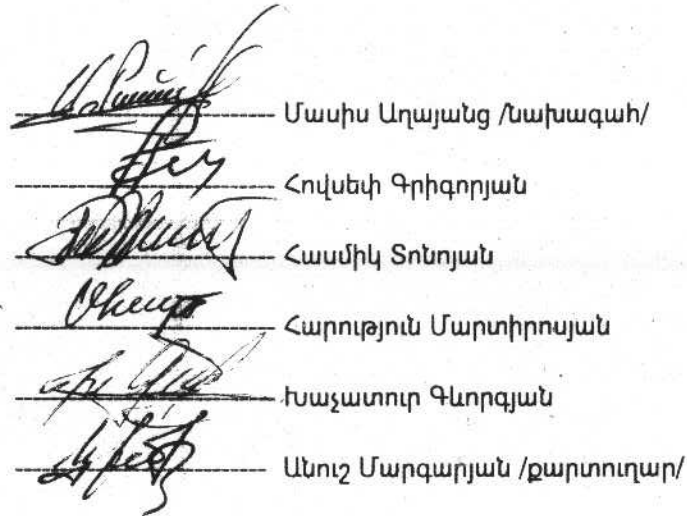 Մասիս Աղայանց /նախագահ/
Հովսեփ Գրիգորյան
Հասմիկ Տոնոյան
Հարություն Մարտիրոսյան
Խաչատուր Գևորգյան
Անուշ Մարգարյան /քարտուղար/